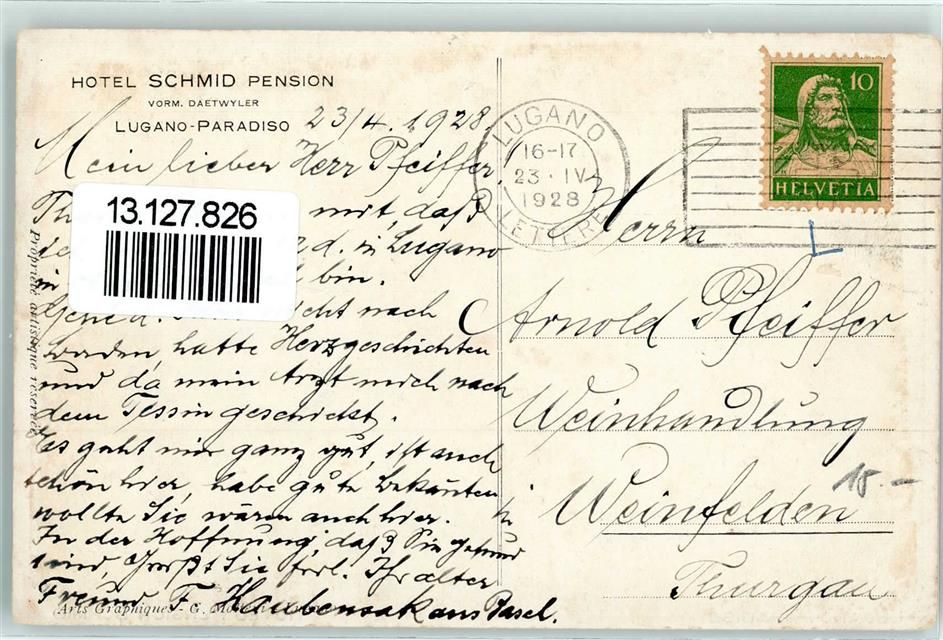 HOTEL SCHMID PENSION
VORM. DAETWYLER
LUGANO-PARADISO 23/4.1928.
Mein lieber Herr Pfeiffer,
mit, daß
d. in Lugano
in bin.
nach
Baden, hatte Herzgeschichten
und da mein Arzt mich nach
dem Tessin geschickt.
Es geht mir ganz gut, ist auch
schön hier, habe gute Bekannten
wollte Sie wären auch hier.
In der Hoffnung, daß Sie gesund
sind, grüßt Sie frdl. Ihr alter
Freund F. Haubensak aus Basel.
Arts Graphiques - G.
Propriété artistique réservée
13.127.826
LUGANO
16-17
23.IV
1928
LETTERE
10
HELVETIA
L
Herrn
Arnold Pfeiffer
Weinhandlung
Weinfelden
15.-
Thurgau